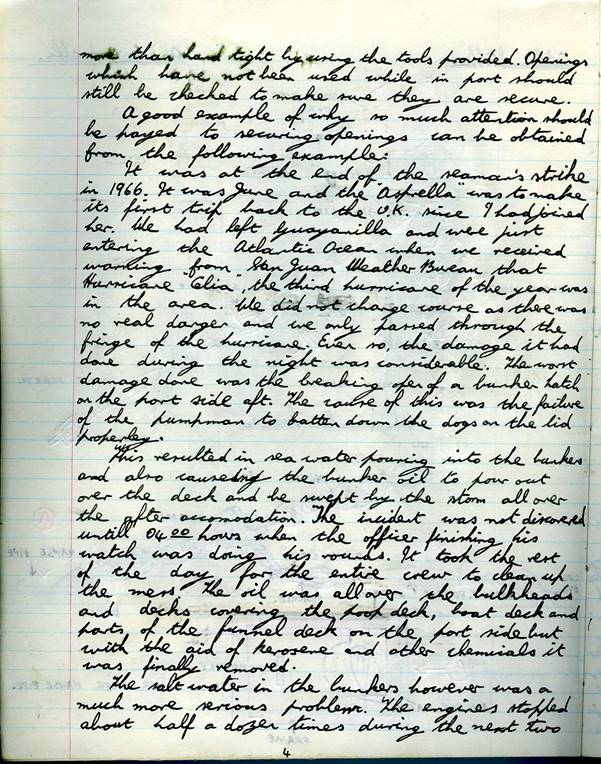 more than hand tight by using the tools provided. Openings
which have not been used while in port should
still be checked to make sure they are secure.
A good example of why so much attention should
be payed to securing openings can be obtained
from the following example:
It was at the end of the seaman's strike
in 1966. It was June and the "Asprella" was to make
its first trip back to the U.K. since I had joined
her. We had left Guayanilla and were just
entering the Atlantic Ocean when we received
warning from San Juan Weather Bureau that
Hurricane Celia, the third hurricane of the year was
in the area. We did not change course as there was
no real danger and we only passed through the
fringe of the hurricane. Even so, the damage it had
done during the night was considerable. The worst
damage done was the breaking open of a bunker hatch
on the port side aft. The cause of this was the failure
of the pumpman to batten down the dogs on the lid
properley.
This resulted in sea water pouring into the bunkers
and also causeing the bunker oil to pour out
over the deck and be swept by the storm all over
the after accomodation. The incident was not discovered
untill 04 00 hours when the officer finishing his
watch was doing his rounds. It took the rest
of the day for the entire crew to clean up
the mess. The oil was all over the bulkheads
and decks covering the poop deck, boat deck and
parts of the funnel deck on the port side but
with the aid of kerosene and other chemicals it
was finally removed.
The salt water in the bunkers however was a
much more serious problem. The engines stopped
about half a dozen times during the next two
4